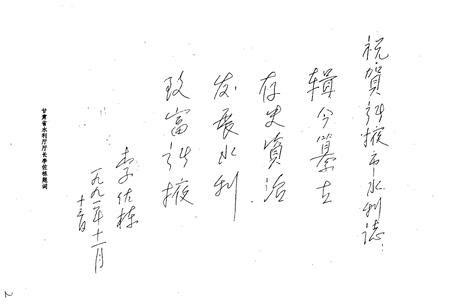 祝賀张掖市水利誌:
辑今纂古
存史資治
发展水利
致富张掖
李佐栋
一九九二年十一月
十二日
甘肃省水利厅厅长李佐栋题词
2